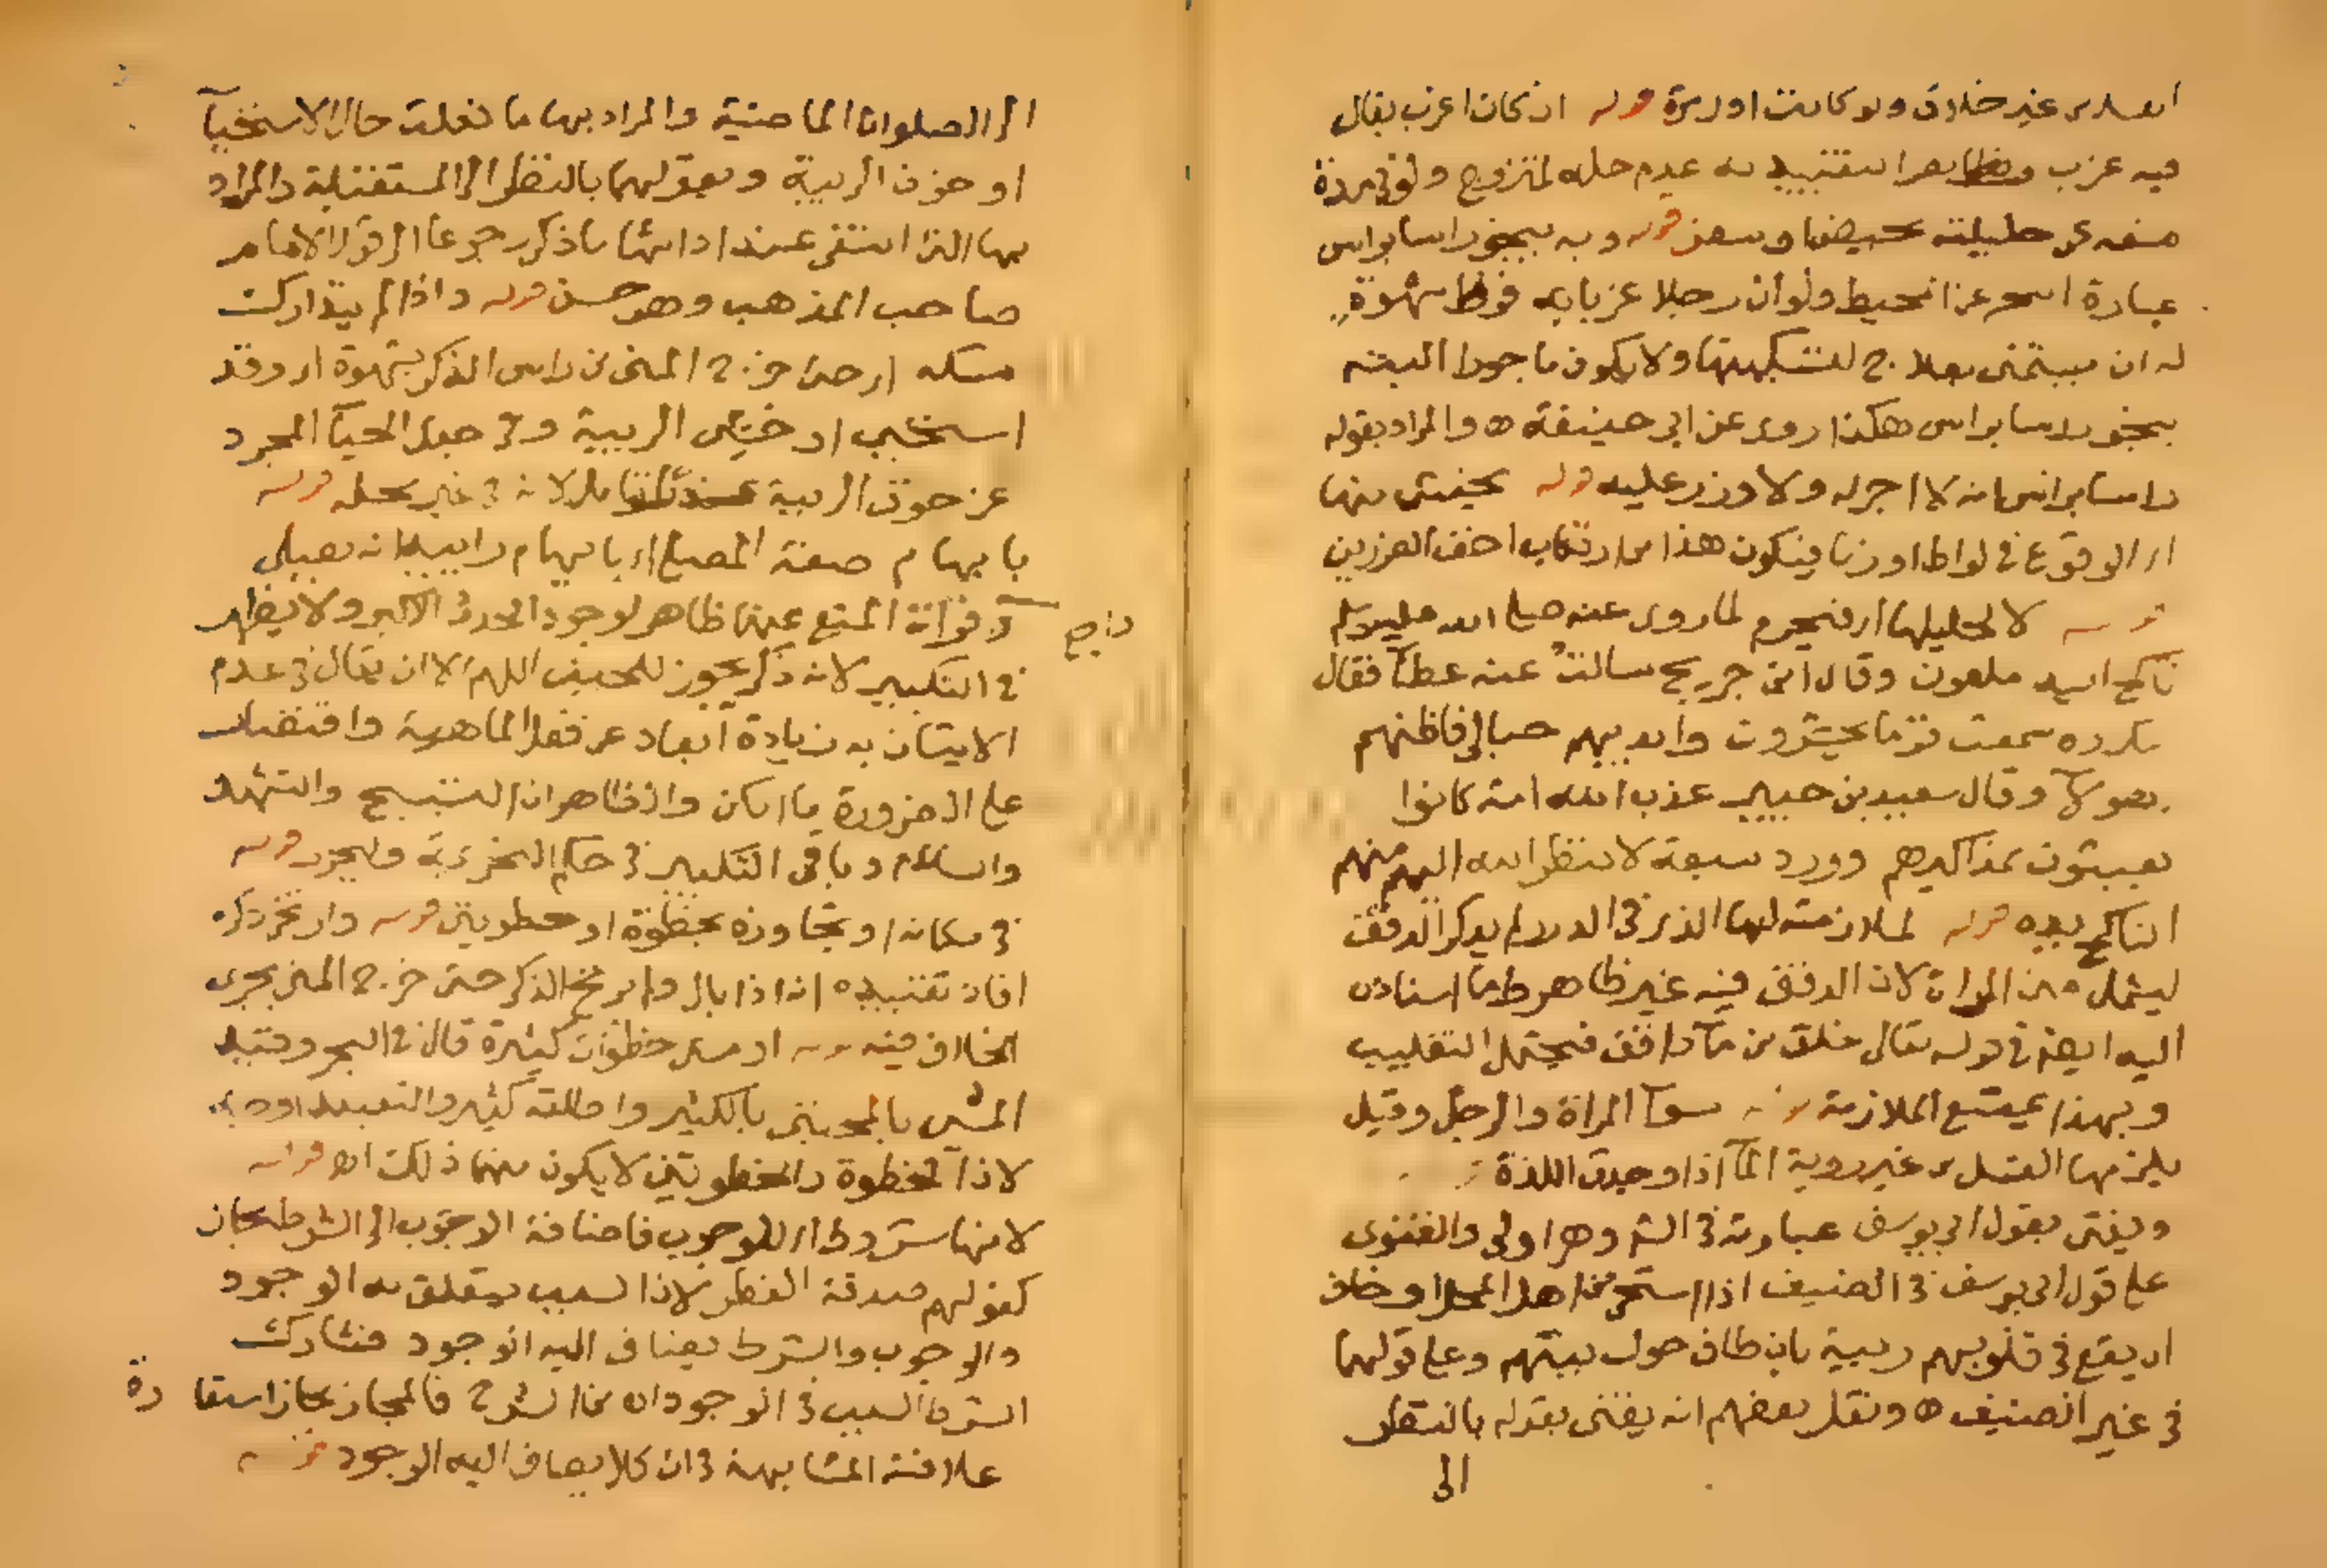 الغسل من غير خلاف ولو كانت اول مرة قوله ان كان اعزب يقال
فيه عزب وظاهر التقييد به عدم حله لمتزوج ولو في مدة
منعه عن حليلته بحيض او سفر قوله وبه ينجو راسا براس
عبارة البحر عن المحيط ولو ان رجلا عزبا به فرط شهوة
له ان يستمنى بعلاج لتسكينها ولا يكون ماجورا البتة
ينجو راسا براس هكذا روى عن ابى حنيفة ه والمراد بقوله
راسا براس انه لا اجر له ولا وزر عليه قوله يخشى منها
اى الوقوع فى لواط او زنا فيكون هذا من ارتكاب اخف الضررين
قوله لا لجلبها اى فيحرم لما روى عنه صلى الله عليه وسلم
ناكح اليد ملعون وقال ابن جريج سالت عنه عطآ فقال
مكروه سمعت قوما يحشرون وايديهم حبالى فاظنهم
هولآ وقال سعيد بن جبير عذب الله امة كانوا
يعبثون بمذاكيرهم وورد سبعة لا ينظر الله اليهم منهم
الناكح يده قوله لملازمته لها الذى فى الدرر لم يذكر الدفق
ليشمل منى المراة لان الدفق فيه غير ظاهر واما اسناده
اليه ايضا فى قوله تعالى خلق من مآ دافق فيحتمل التغليب
وبهذا يمنع الملازمة قوله سوآ المراة والرجل وقيل
يلزمها الغسل من غير روية المآ اذا وجدت اللذة
ويفتى بقول ابى يوسف عبارته فى الشر وهو اولى والفتوى
على قول ابى يوسف فى الضيف اذا استحى من اهل المحل او خاف
ان يقع فى قلوبهم ريبة بان طاف حول بيتهم وعلى قولهما
فى غير الضيف ه ونقل بعضهم انه يفتى بقوله بالنظر
الى
الى الصلوات الماضية والمراد بها ما فعلت حال الاستحيآ
او خوف الريبة وبقولهما بالنظر الى المستقبلة والمراد
بها التى انتفى عند ادائها ما ذكر رجوعا الى قول الامام
صاحب المذهب وهو حسن قوله واذا لم يتدارك
مسكه اى حتى خرج المنى من راس الذكر بشهوة اى وقد
استحيى او خشى الريبة وفى جعل الحيآ المجرد
عن خوف الريبة عذرا تامل لانه فى غير محله قوله
بايهام صفة المصلى اى بايهام رائيه انه يصلى
وقرآة المنع عنها ظاهر لوجود الحدث الاكبر ولا يظهر
راجح
فى التكبير لانه ذكر يجوز للحيض اللهم الا ان يقال فى عدم
الاتيان به زيادة ابعاد عن فعل الماهية واقتضاب
على الضرورة ما امكن والظاهر ان التسبيح والتشهد
والسلام وباقى التكبير فى حكم التحريمة وليحرر قوله
فى مكانه او تجاوزه بخطوة او خطوتين قوله وانتشر ذكره
افاد تقييده انه اذا بال ولم ينتشر الذكر حتى خرج المنى يجرى
الخلاف فيه قوله او مشى خطوات كثيرة قال فى البحر وقيد
المشى بالمجتبى بالكثير واطلقه كثير والتقييد اوجه
لان الخطوة والخطوتين لا يكون منهما ذلك اه قوله
لانها شروط اى للوجوب فاضافة الوجوب الى الشرط مجاز
كقولهم صدقة الفطر لان السبب يتعلق به الوجود
والوجوب والشرط يضاف اليه الوجود فشارك
الشرط السبب فى الوجود اه من الشرح فالمجاز مجاز استعارة
علاقته المشابهة فى ان كلا يضاف اليه الوجود قوله